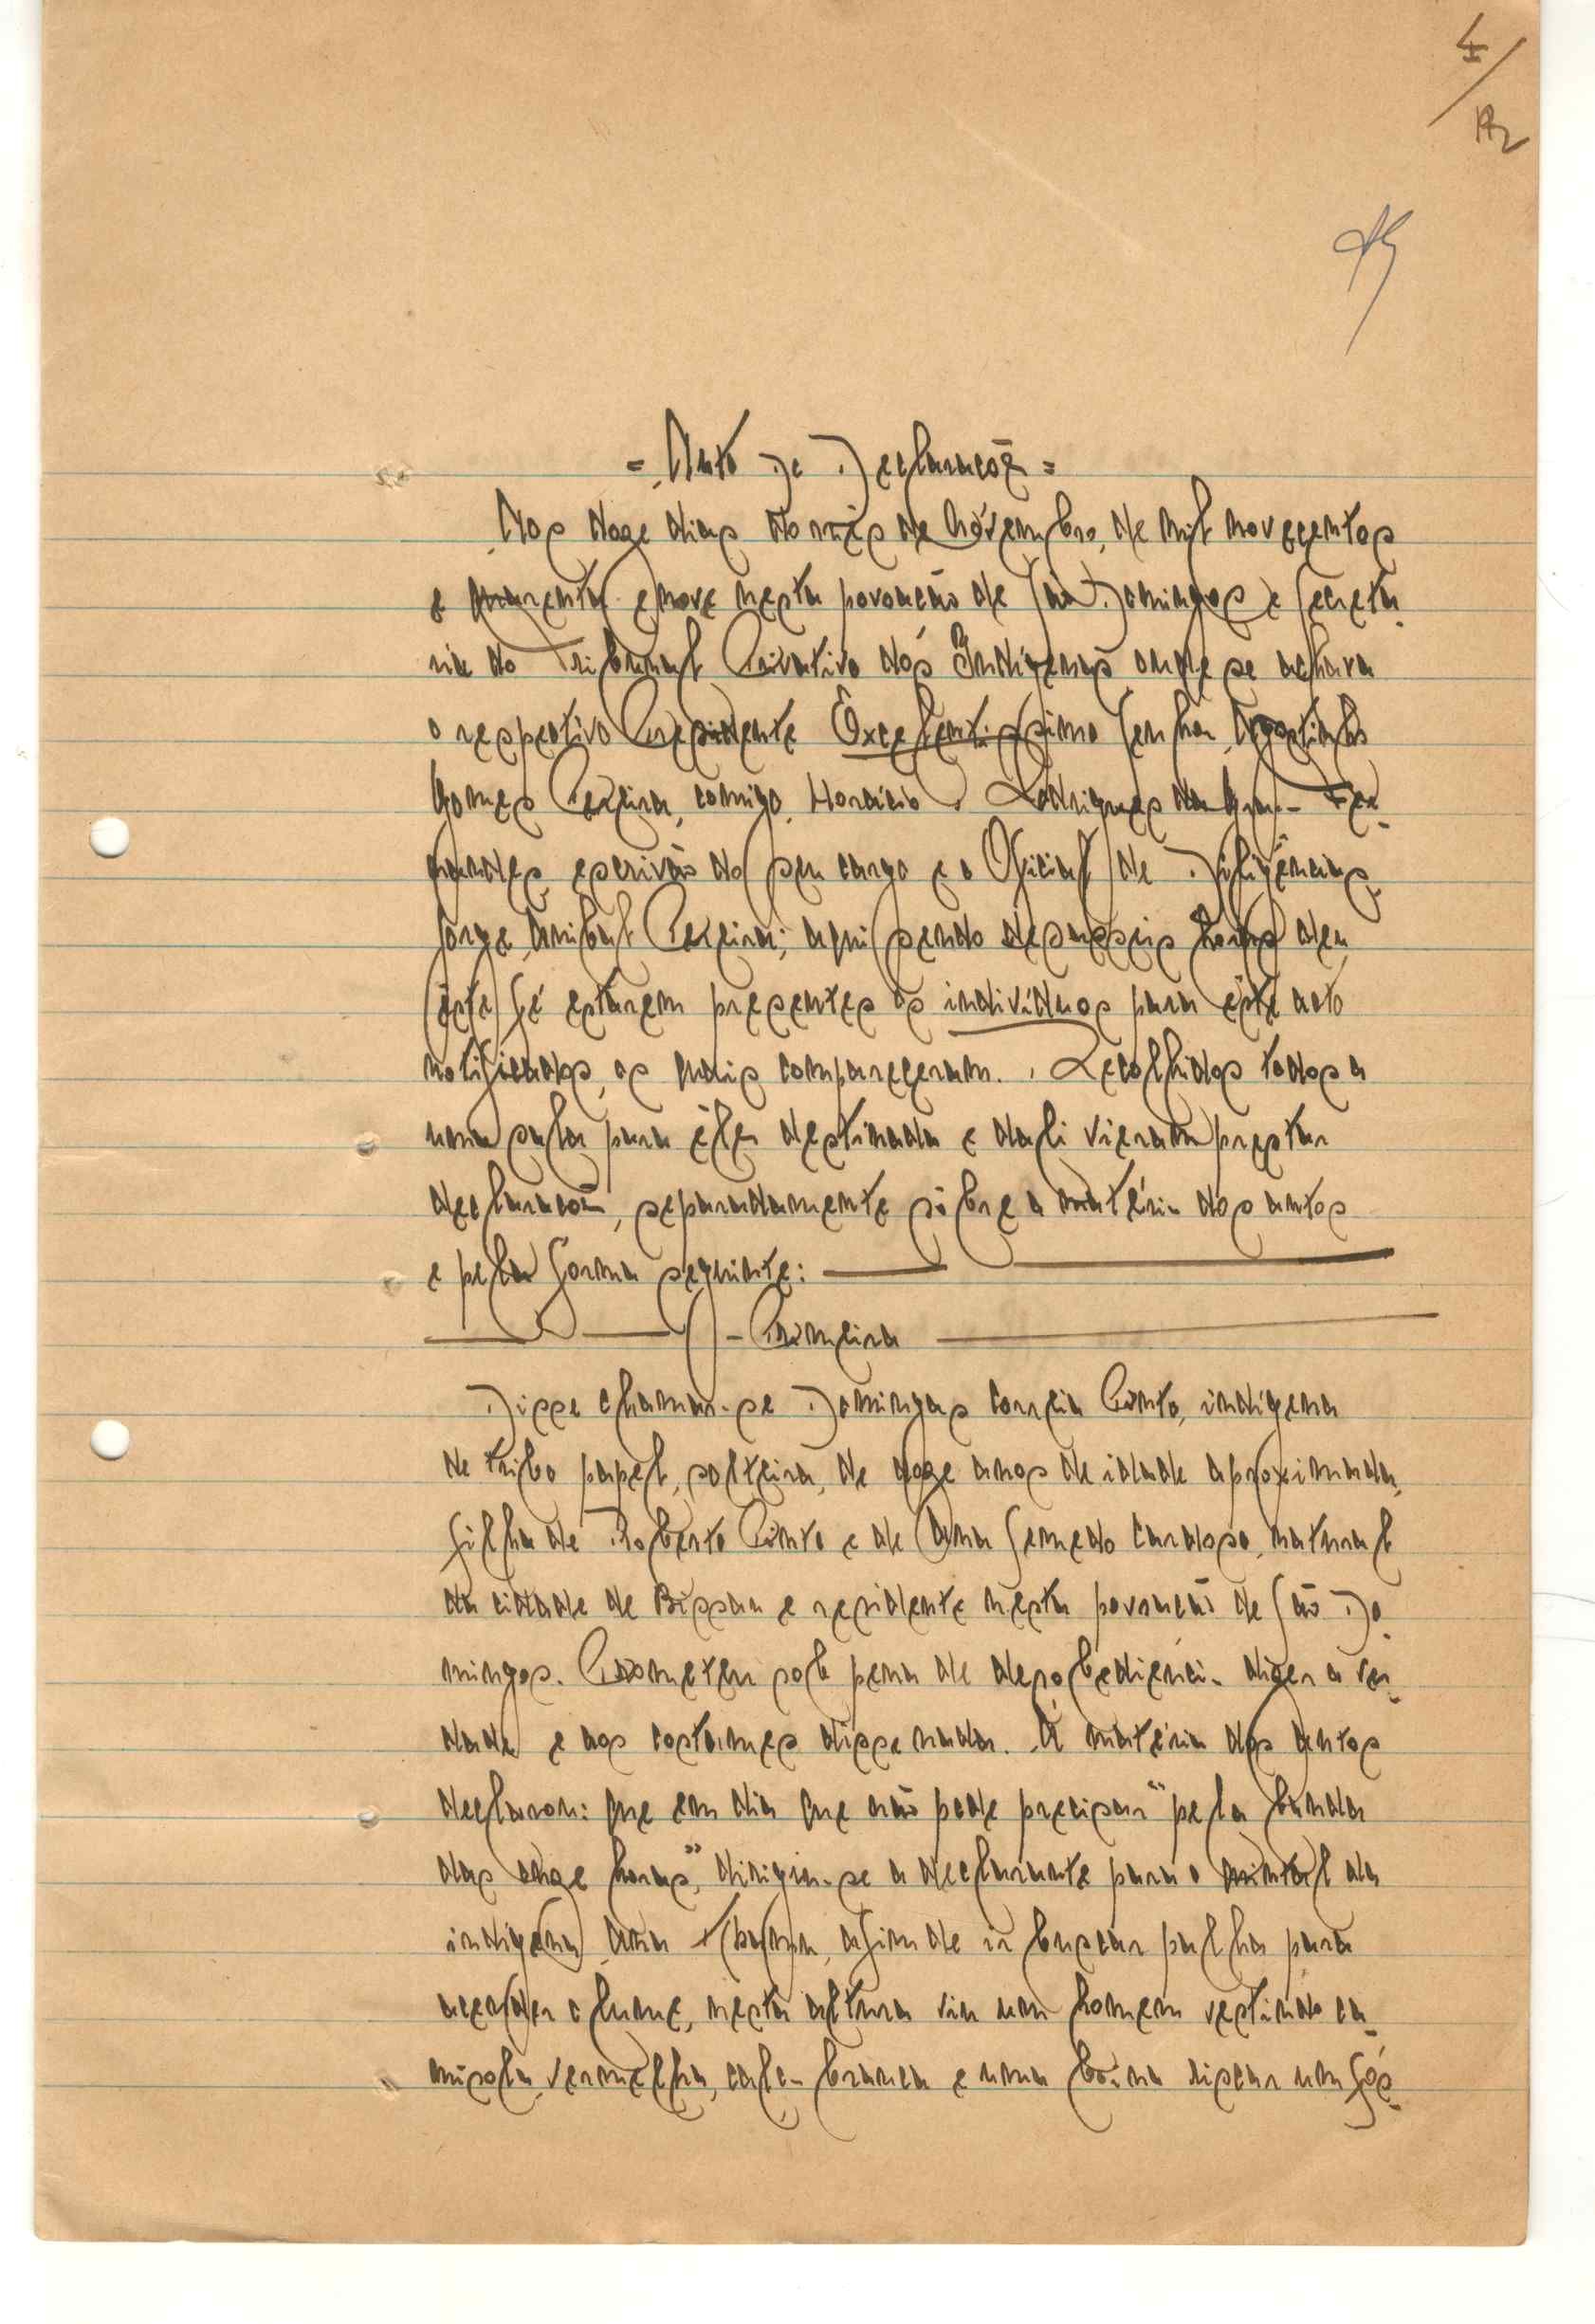 4
= Auto de Declaracoẽ =
Aos doze dias do mês de Novembro, de mil novecentos
e quarenta e nove nesta povoacão de São Domingos e Secreta-
ria do Tribunal Privativo dos Indígenas onde se achava
o respectivo Presidente Excelentissimo Senhor Agostinho
Gomes Pereira, comigo, Horácio Rodrigues da Fer-
nandes, escrivão do seu cargo e o Oficial de Diligências,
Jorge Anibal Pereira; aqui sendo desasseis horas deu
êste fé estarem presentes os indivíduos para êste acto
notificados, os quais compareceram. Recolhidos todos a
uma sala para êles destinada e dali vieram prestar
declaracoẽ, separadamente sôbre a matéria dos autos
e pela forma seguinte:
- Primeira
Disse chamar-se Domingas Correia Pinto, indígena
de tribo papel, solteira, de doze anos de idade aproximada,
filha de Roberto Pinto e de Ana Semedo Cardoso, natural
da cidade de Bissau e residente nesta povoacão de São Do-
mingos. Prometeu sob pena de desobediência dizer a ver-
dade e aos costumes disse nada. Á matéria dos autos
declarou: que em dia que não pode precisar "pela banda
das onze horas", dirigiu-se a declarante para o quintal da
indígena Ana, afim de ir buscar palha para
acender o lume, nesta altura viu um homem vestindo ca-
misola vermelha, calca branca e uma boina riscar um fós-